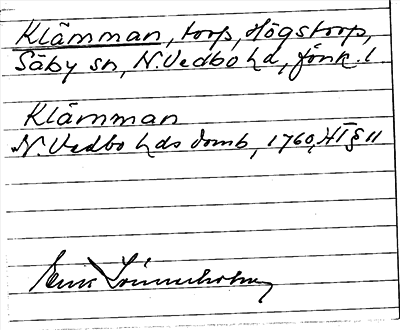 Klämman, torp, Högstorp,
Säby sn, N. Vedbo hd, Jönk. l
Klämman
N. Vedbo hds domb, 1760, HT § 11
Erik